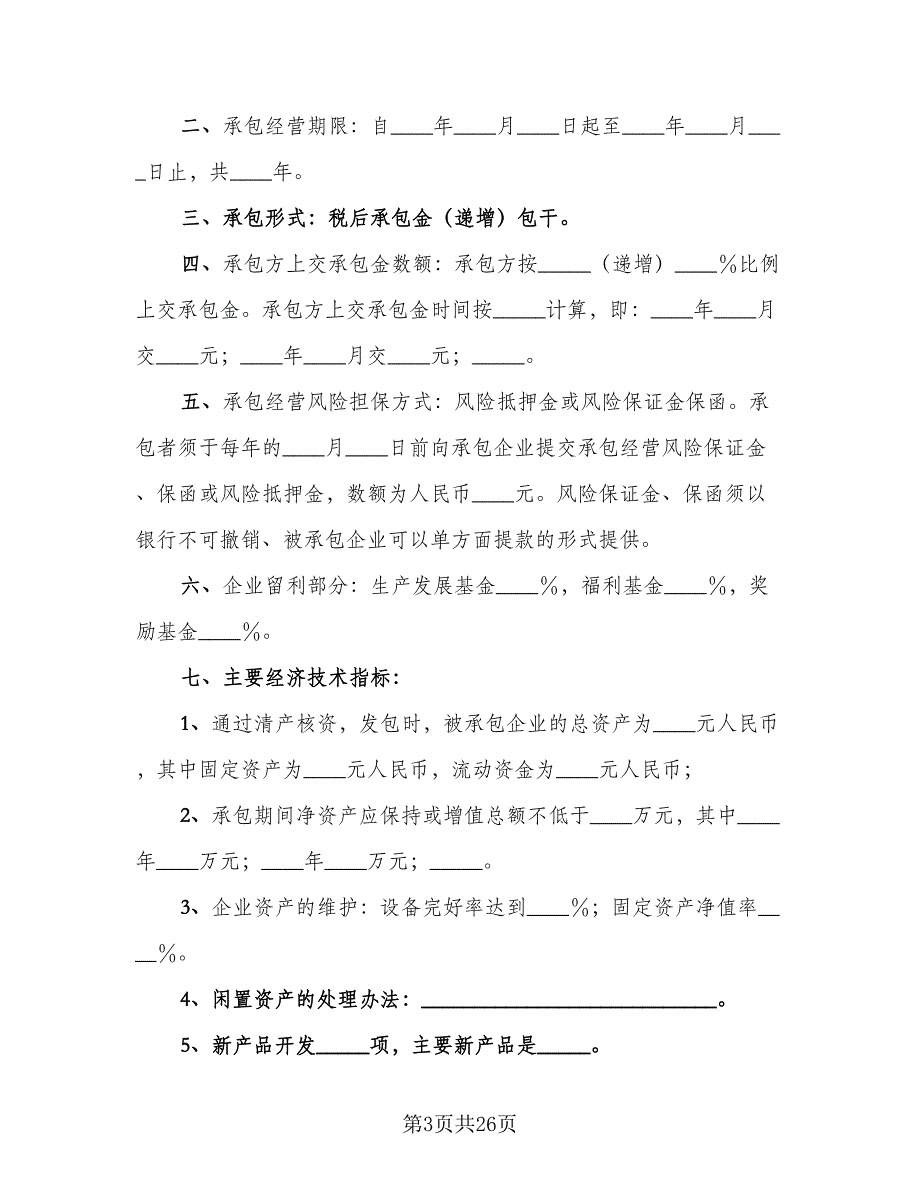 二、承包经营期限：自____年____月____日起至____年____月___
_日止，共____年。
三、承包形式：税后承包金（递增）包干。
四、承包方上交承包金数额：承包方按_____（递增）____%比例
上交承包金。承包方上交承包金时间按_____计算，即：____年____月
交____元；____年____月交____元；_____。
五、承包经营风险担保方式：风险抵押金或风险保证金保函。承
包者须于每年的____月____日前向承包企业提交承包经营风险保证金
、保函或风险抵押金，数额为人民币____元。风险保证金、保函须以
银行不可撤销、被承包企业可以单方面提款的形式提供。
六、企业留利部分：生产发展基金____%，福利基金____%，奖
励基金____%。
七、主要经济技术指标：
1、通过清产核资，发包时，被承包企业的总资产为____元人民币
，其中固定资产为____元人民币，流动资金为____元人民币；
2、承包期间净资产应保持或增值总额不低于____万元，其中____
年____万元；____年____万元；_____。
3、企业资产的维护：设备完好率达到____%；固定资产净值率__
__%。
4、闲置资产的处理办法：____________________________。
5、新产品开发_____项，主要新产品是_____。
第3页共26页